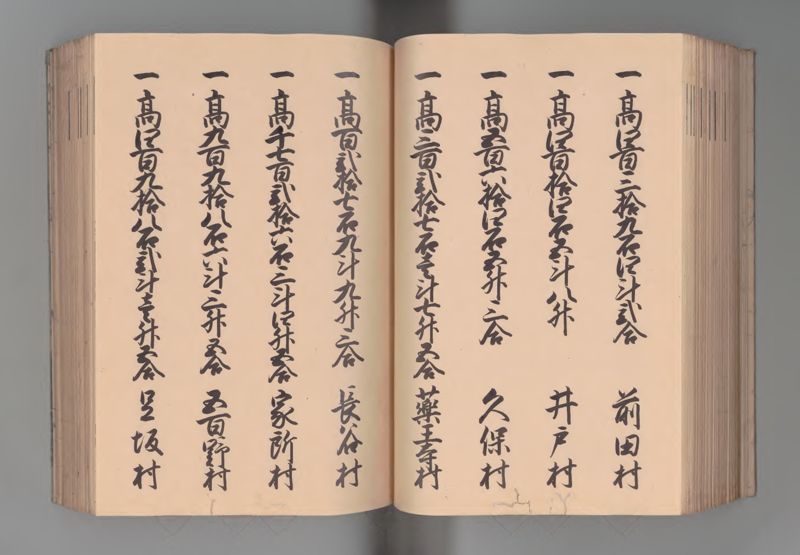 一高四百三拾九石四斗弐合 前田村
一高四百拾四石五斗八升 井戸村
一高五百六拾四石五升三合 久保村
一高三百弐拾七石壱斗七升五合 薬王寺村
一高百弐拾七石九斗九升三合 長谷村
一高千七百弐拾六石三斗四升五合 家所村
一高九百九拾八石六斗三升五合 五百野村
一高四百九拾八石弐斗壱升五合 足坂村